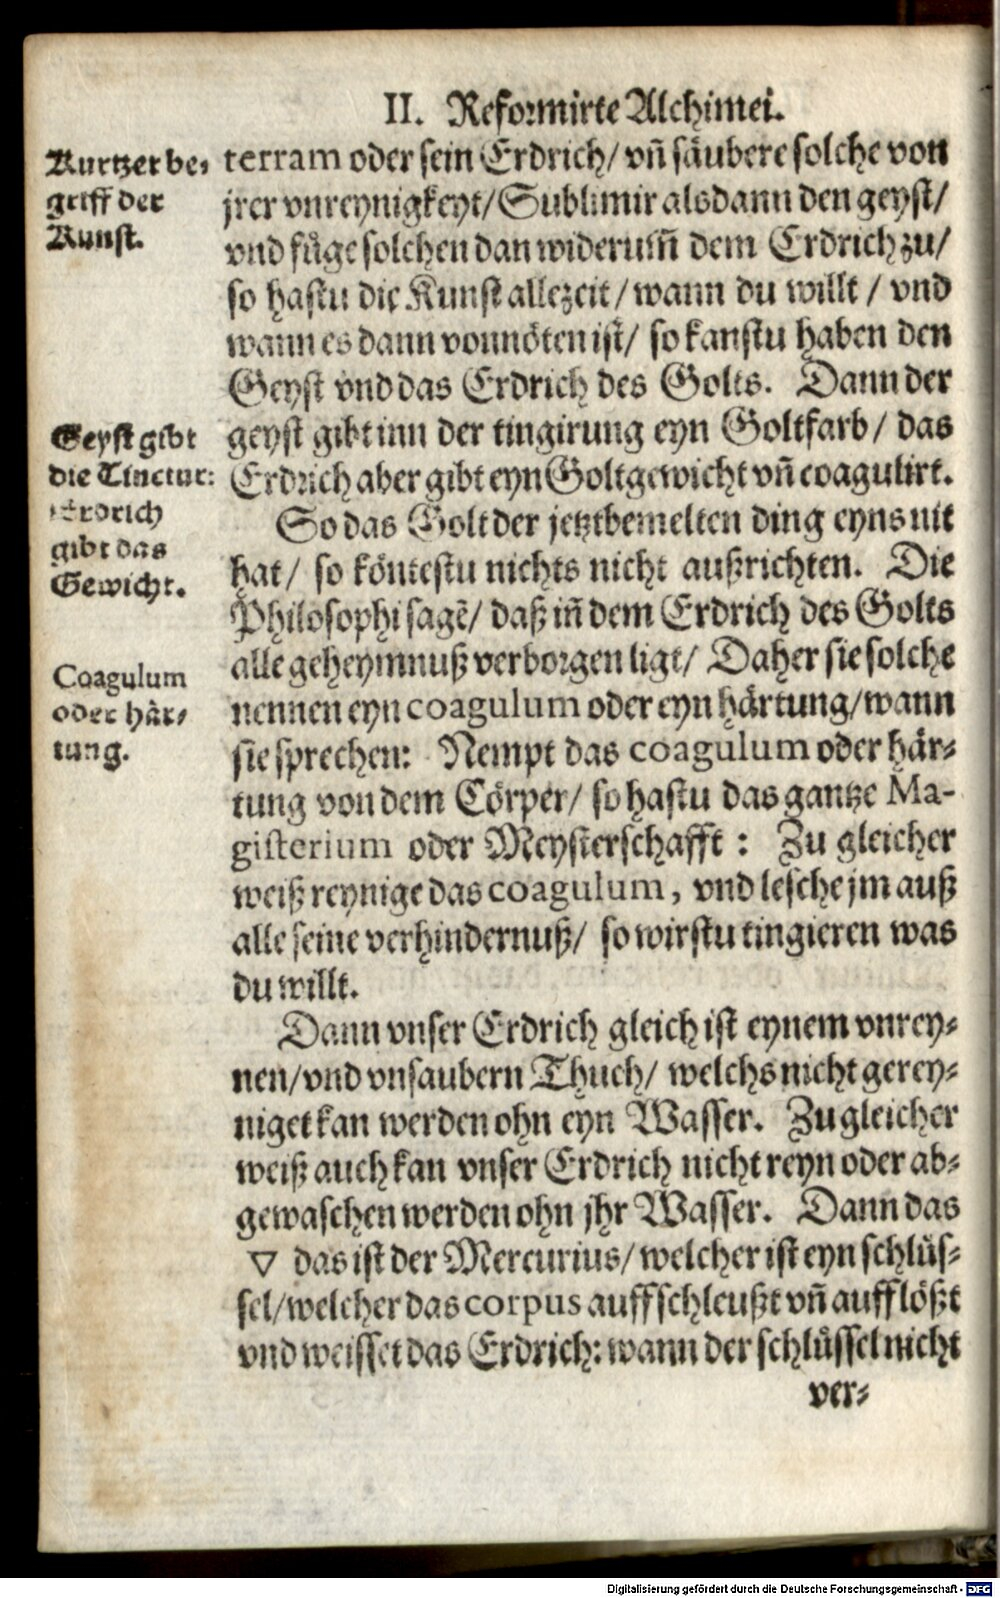 II. Reformirte Alchimei.
Kurtzer be-
griff der
Kunst.
terram oder sein Erdrich/ vñ säubere solche von
jrer vnreynigkeyt/ Sublimir alsdann den geyst/
vnd füge solchen dan widerum̃ dem Erdrich zu/
so hastu die Kunst allezeit/ wann du willt/ vnd
wann es dann vonnöten ist/ so kanstu haben den
Geyst vnd das Erdrich des Golts. Dann der
Geyst gibt
die Tinctur:
Erdrich
gibt das
Gewicht.
geyst gibt inn der tingirung eyn Goltfarb/ das
Erdrich aber gibt eyn Goltgewicht vñ coagulirt.
So das Golt der jetztbemelten ding eyns nit
hat/ so köntestu nichts nicht außrichten. Die
Philosophi sagẽ/ daß iñ dem Erdrich des Golts
alle geheymnuß verborgen ligt/ Daher sie solche
Coagulum
oder här-
tung.
nennen eyn coagulum oder eyn härtung/ wann
sie sprechen: Nempt das coagulum oder här-
tung von dem Cörper/ so hastu das gantze Ma-
gisterium oder Meysterschafft: Zu gleicher
weiß reynige das coagulum, vnd lesche jm auß
alle seine verhindernuß/ so wirstu tingieren was
du willt.
Dann vnser Erdrich gleich ist eynem vnrey-
nen/ vnd vnsaubern Thuch/ welchs nicht gerey-
niget kan werden ohn eyn Wasser. Zu gleicher
weiß auch kan vnser Erdrich nicht reyn oder ab-
gewaschen werden ohn jhr Wasser. Dann das
▽ das ist der Mercurius/ welcher ist eyn schlüs-
sel/ welcher das corpus auffschleußt vñ aufflößt
vnd weisset das Erdrich: wann der schlüssel nicht
ver-
Digitalisierung gefördert durch die Deutsche Forschungsgemeinschaft - DFG